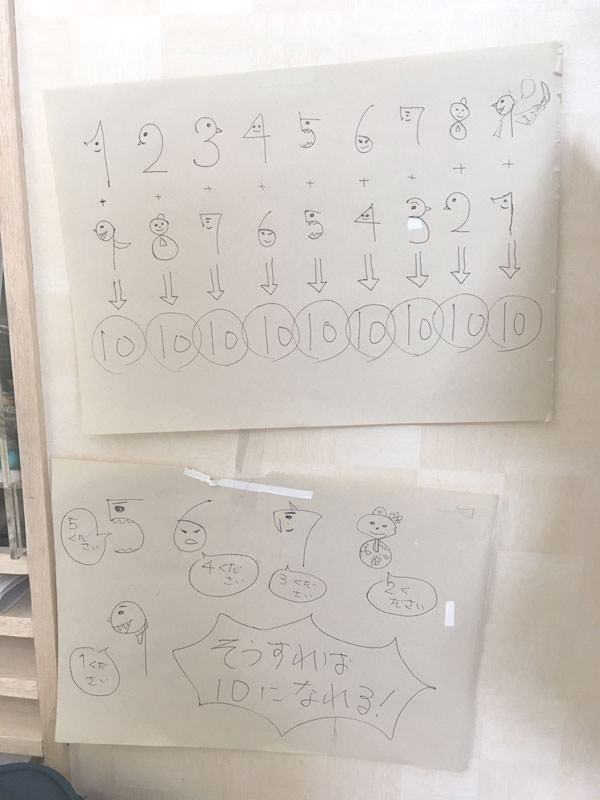 1 2 3 4 5 6 7 8 9
+ + + + + + + + +
9 8 7 6 5 4 3 2 1
⇓ ⇓ ⇓ ⇓ ⇓ ⇓ ⇓ ⇓ ⇓
10 10 10 10 10 10 10 10 10
5 6 7 8
5
くだ
さい
4くだ
さい
3くだ
さい
2く
ださい
9
1くだ
さい
そうすれば
10になれる!